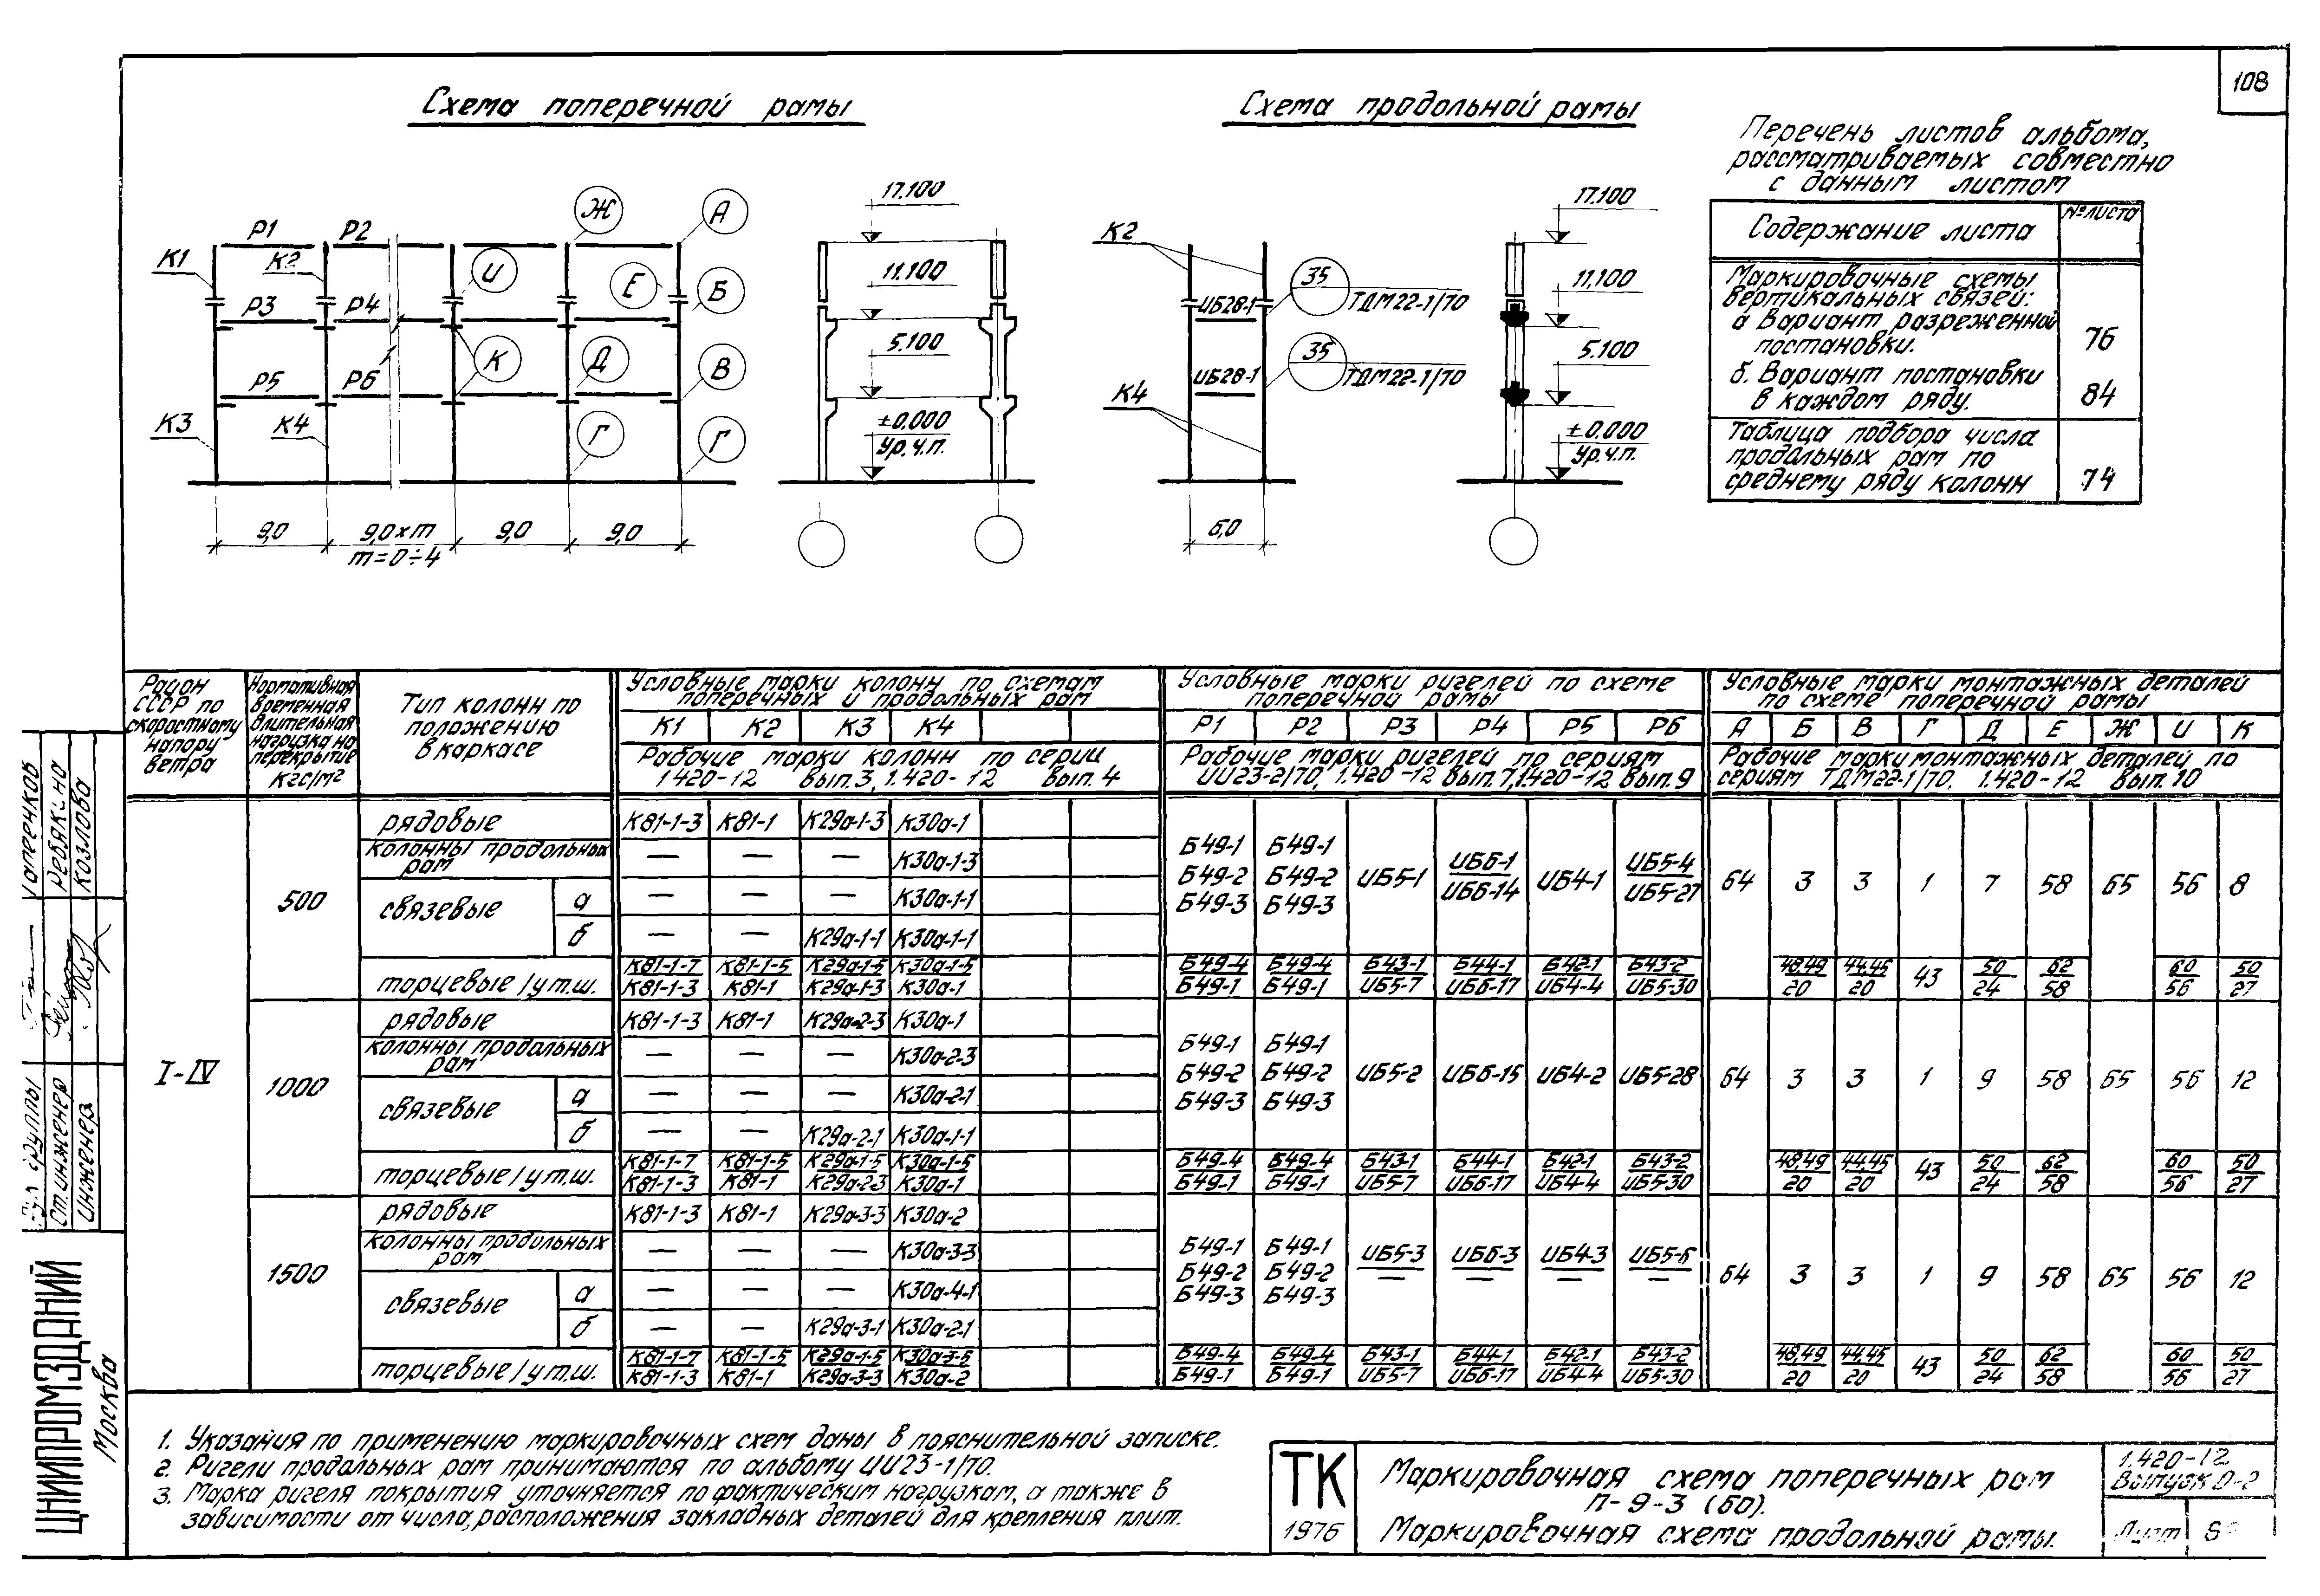 108
Схема поперечной рамы
Схема продольной рамы
Перечень листов альбома,
рассматриваемых совместно
с данным листом
Содержание листа
№ листа
Маркировочные схемы
вертикальных связей:
а Вариант разреженной
постановки.
76
б. Вариант постановки
в каждом ряду.
84
Таблица подбора числа
продольных рам по
среднему ряду колонн
74
Р1 Р2
К1 К2
Р3 Р4
Р5 Р6
К3 К4
Ж А
И Е Б
К Д В
Г Г
9,0 9,0×m 9,0 9,0
m=0÷4
17.100
11.100
5.100
±0.000
Ур.ч.п.
К2
ИБ28-1
35
ТДМ22-1/70
ИБ28-1
35
ТДМ22-1/70
К4
6,0
17.100
11.100
5.100
±0.000
Ур.ч.п.
Район
СССР по
скоростному
напору
ветра
Нормативная
временная
длительная
нагрузка на
перекрытие
кгс/м²
Тип колонн по
положению
в каркасе
Условные марки колонн по схемам
поперечных и продольных рам
К1 К2 К3 К4
Рабочие марки колонн по серии
1.420-12 вып.3, 1.420-12 вып.4
Условные марки ригелей по схеме
поперечной рамы
Р1 Р2 Р3 Р4 Р5 Р6
Рабочие марки ригелей по сериям
ИИ23-2/70, 1.420-12 вып.7, 1.420-12 вып.9
Условные марки монтажных деталей
по схеме поперечной рамы
А Б В Г Д Е Ж И К
Рабочие марки монтажных деталей по
сериям ТДМ22-1/70. 1.420-12 вып.10
I-IV
500
рядовые К81-1-3 К81-1 К29а-1-3 К30а-1
колонны продольных
рам — — — К30а-1-3
связевые
а — — — К30а-1-1
б — — К29а-1-1 К30а-1-1
Б49-1 Б49-1
Б49-2 Б49-2
Б49-3 Б49-3
ИБ5-1 ИБ6-1 ИБ4-1 ИБ5-4
ИБ6-14 ИБ5-27
64 3 3 1 7 58 65 56 8
торцевые/у т.ш.
К81-1-7 К81-1-5 К29а-1-5 К30а-1-5 Б49-4 Б49-4 Б43-1 Б44-1 Б42-1 Б43-2 48,49 44,45 43 50 62 60 50
К81-1-3 К81-1 К29а-1-3 К30а-1 Б49-1 Б49-1 ИБ5-7 ИБ6-17 ИБ4-4 ИБ5-30 20 20 24 58 56 27
1000
рядовые К81-1-3 К81-1 К29а-2-3 К30а-1
колонны продольных
рам — — — К30а-2-3
связевые
а — — — К30а-2-1
б — — К29а-2-1 К30а-1-1
Б49-1 Б49-1
Б49-2 Б49-2
Б49-3 Б49-3
ИБ5-2 ИБ6-15 ИБ4-2 ИБ5-28
64 3 3 1 9 58 65 56 12
торцевые/у т.ш.
К81-1-7 К81-1-5 К29а-1-5 К30а-1-5 Б49-4 Б49-4 Б43-1 Б44-1 Б42-1 Б43-2 48,49 44,45 43 50 62 60 50
К81-1-3 К81-1 К29а-2-3 К30а-1 Б49-1 Б49-1 ИБ5-7 ИБ6-17 ИБ4-4 ИБ5-30 20 20 24 58 56 27
1500
рядовые К81-1-3 К81-1 К29а-3-3 К30а-2
колонны продольных
рам — — — К30а-3-3
связевые
а — — — К30а-4-1
б — — К29а-3-1 К30а-2-1
Б49-1 Б49-1
Б49-2 Б49-2
Б49-3 Б49-3
ИБ5-3 ИБ6-3 ИБ4-3 ИБ5-6
— — — —
64 3 3 1 9 58 65 56 12
торцевые/у т.ш.
К81-1-7 К81-1-5 К29а-1-5 К30а-3-5 Б49-4 Б49-4 Б43-1 Б44-1 Б42-1 Б43-2 48,49 44,45 43 50 62 60 50
К81-1-3 К81-1 К29а-3-3 К30а-2 Б49-1 Б49-1 ИБ5-7 ИБ6-17 ИБ4-4 ИБ5-30 20 20 24 58 56 27
1. Указания по применению маркировочных схем даны в пояснительной записке.
2. Ригели продольных рам принимаются по альбому ИИ23-1/70.
3. Марка ригеля покрытия уточняется по фактическим нагрузкам, а также в
зависимости от числа, расположения закладных деталей для крепления плит.
ТК
1976
Маркировочная схема поперечных рам
П-9-3 (60).
Маркировочная схема продольной рамы.
1.420-12
Выпуск 0-2
Лист
группы
Ст.инженер Ревякина
Инженер Козлова
ЦНИИПРОМЗДАНИЙ
Москва